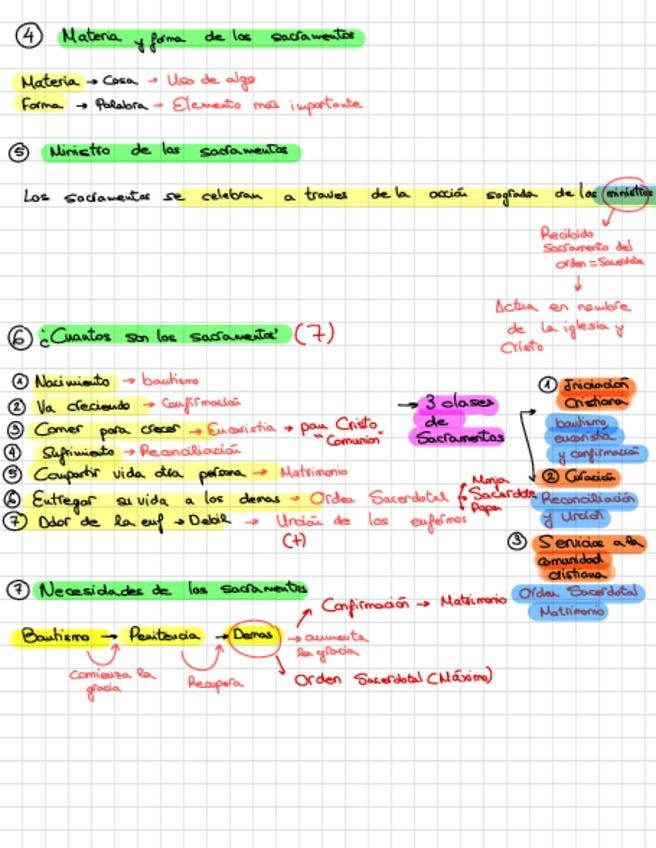 ④ Materia y forma de los sacramentos
Materia → Cosa → Uso de algo
Forma → Palabra → Elemento más importante
⑤ Ministro de los sacramentos
Los sacramentos se celebran a traves de la acción sagrada de los ministros
Recibido
Sacramento del
orden = Sacerdote
↓
Actua en nombre
de la iglesia y
Cristo
⑥ ¿Cuantos son los sacramentos? (7)
① Nacimiento → bautismo
② Va creciendo → Confirmación
③ Comer para crecer → Eucaristia → pan Cristo
"Comunion"
④ Sufrimiento → Reconciliación
⑤ Compartir vida otra persona → Matrimonio
⑥ Entregar su vida a los demas → Orden Sacerdotal { Monja
Sacerdote
Papa
⑦ Dolor de la enf → Debil → Unción de los enfermos
(+)
→ 3 clases
de
Sacramentos
① Iniciación
Cristiana
bautismo,
eucaristia
y confirmación
② Curación
Reconciliación
y Unción
③ Servicios a la
comunidad
cristiana
Orden Sacerdotal
Matrimonio
⑦ Necesidades de los sacramentos
Bautismo → Penitencia → Demas → aumenta
la gracia
Comienza la
gracia
Recupera
Confirmación → Matrimonio
Orden Sacerdotal (Máximo)